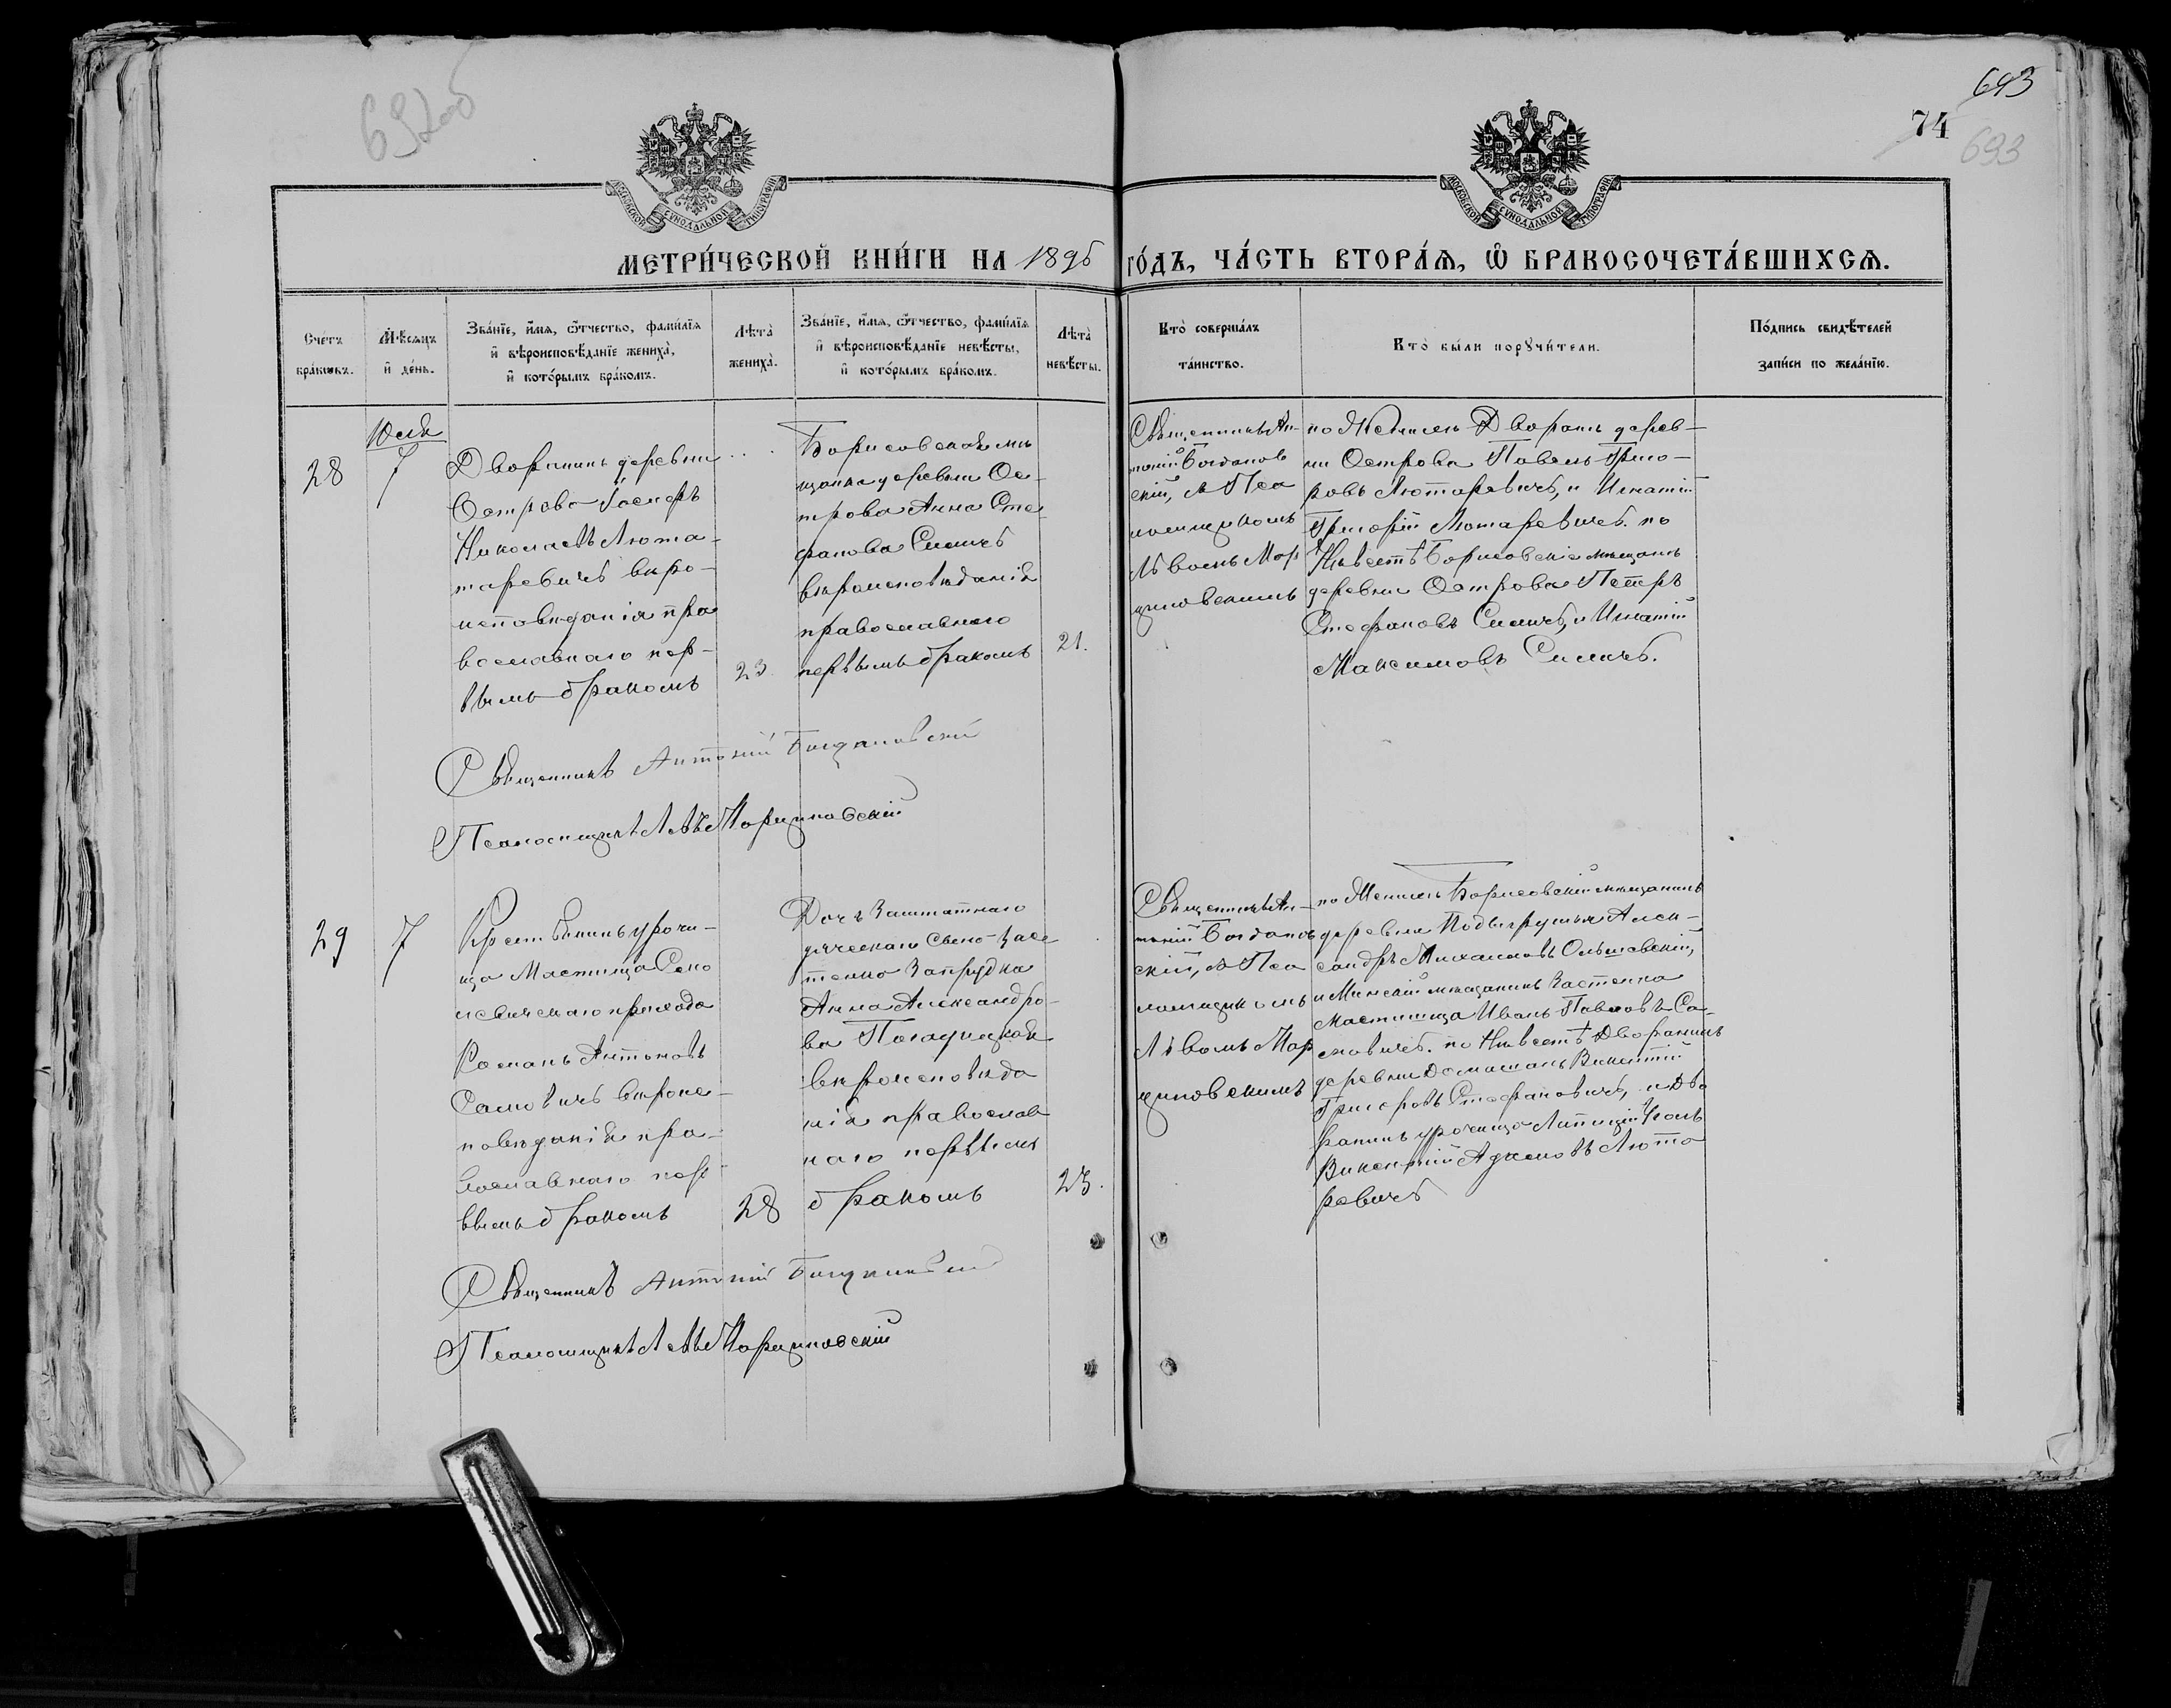 692об
693
74
693
МОСКОВСКОЙ СУНОДАЛЬНОЙ ТИПОГРАФІИ
МОСКОВСКОЙ СУНОДАЛЬНОЙ ТИПОГРАФІИ
МЕТРИ́ЧЕСКОЙ КНИ́ГИ НА 1896 ГО́ДЪ, ЧА́СТЬ ВТОРА́Ѧ, Ѡ҆ БРАКОСОЧЕТА́ВШИХСѦ.
Сче́тъ
бра́кѡвъ.
Мѣ́сѧцъ
и҆ де́нь.
Зва́нїе, и҆́мѧ, ѻ҆́тчество, фами́лїѧ
и҆ вѣроисповѣ́данїе жениха̀,
и҆ кото́рымъ бра́комъ.
Лѣта̀
жениха̀.
Зва́нїе, и҆́мѧ, ѻ҆́тчество, фами́лїѧ
и҆ вѣроисповѣ́данїе невѣ́сты,
и҆ кото́рымъ бра́комъ.
Лѣта̀
невѣ́сты.
Кто̀ соверша́лъ
та́инство.
Кто̀ бы́ли порꙋчи́тели.
По́дпись свидѣ́телей
за́писи по жела́нїю.
Юля
28
7
Дворянинъ деревни
Острова Госиръ
Николаевъ Люта-
таревичъ вѣро-
исповѣданія пра
вославнаго пер-
вымъ бракомъ
23.
Борисовская мѣ
щанка деревни Ос-
трова Анна Сте
фанова Силичъ
вѣроисповѣданія
православнаго
первымъ бракомъ
21.
Священникъ Ан-
тоній Богданов
скій, съ Пса
ломщикомъ
Львомъ Мор
циновскимъ
по Женихѣ Дворяне дерев-
ни Острова Павелъ Григо-
ровъ Лютаревичъ, и Игнатій
Григорій Лютаревичъ. по
Невѣстѣ Борисовскіе мѣщане
деревни Острова Петръ
Стефановъ Силичъ, и Игнатій
Максимовъ Силичъ.
Священникъ Антоній Богдановскій
Псаломщикъ Левъ Морциновскій
29
7
Крестьянинъ урочи-
ща Мастища Сено
исвичскаго прихода
Романъ Антоновъ
Самовичъ вѣроис-
повѣданія пра-
вославнаго пер
вымъ бракомъ
28
Дочь Заштатнаго
дяческаго сына за
стенка Запрудка
Анна Александро-
ва Погадицкая
вѣроисповѣда
нія православ
наго первымъ
бракомъ
23.
Священникъ Ан-
тоній Богданов
скій, съ Пса
ломщикомъ
Львомъ Мор
циновскимъ
по Женихѣ Борисовскій мѣщанинъ
деревни Подвигрушья Алек-
сандръ Михаиловъ Ольшевскій,
и Минскій мѣщанинъ Застенка
Мастища Иванъ Павловъ Са-
мовичъ. по Невѣстѣ Дворянинъ
деревни Домашанъ Викентій
Григоровъ Стефановичъ, и Дво
рянинъ урочища Липицій Уголъ
Викентій Адамовъ Люта
ревичъ
Священникъ Антоній Богдановскій
Псаломщикъ Левъ Морциновскій